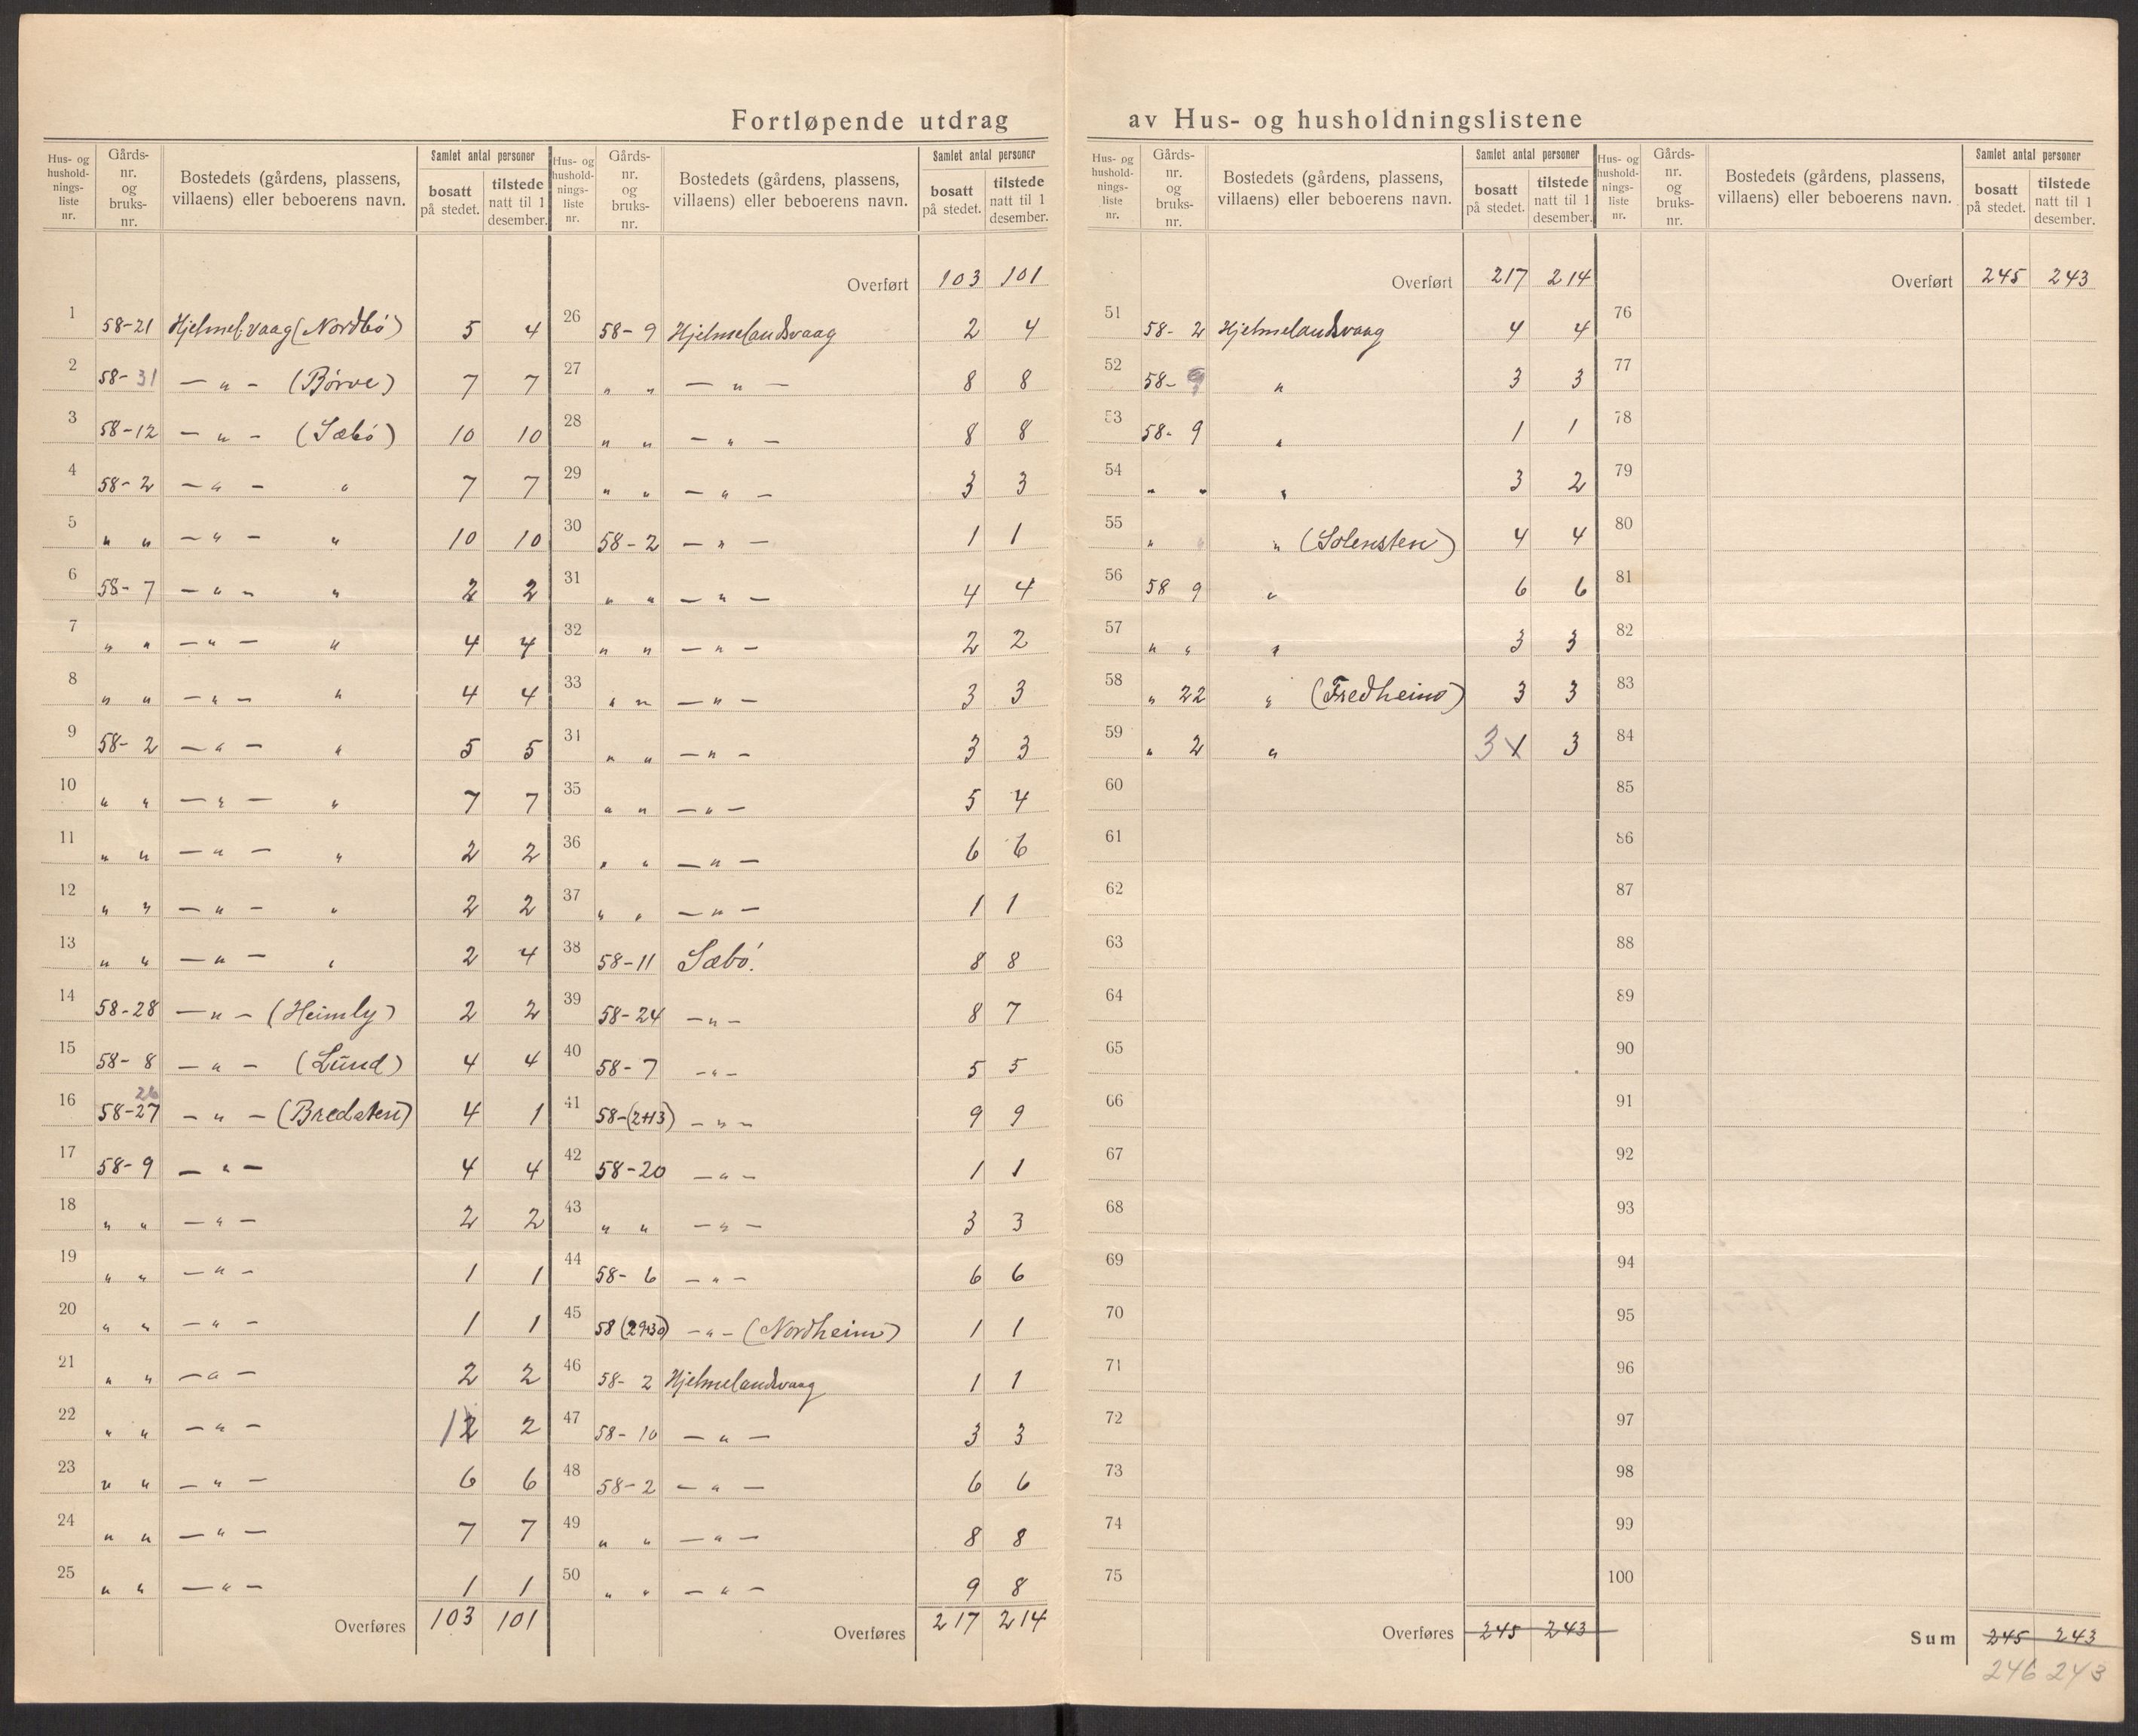 Fortløpende utdrag av Hus- og husholdningslistene
Hus- og hushold-nings-liste nr. | Gårds-nr. og bruks-nr. | Bostedets (gårdens, plassens, villaens) eller beboerens navn. | Samlet antal personer | bosatt på stedet. | tilstede natt til 1 desember.
1 58-21 Hjelmel.vaag (Nordbö) 5 4
2 58-31 — „ — (Börve) 7 7
3 58-12 — „ — (Sæbö) 10 10
4 58-2 — „ — „ 7 7
5 „ „ — „ — „ 10 10
6 58-7 — „ — „ 2 2
7 „ „ — „ — „ 4 4
8 „ „ — „ — „ 4 4
9 58-2 — „ — „ 5 5
10 „ „ — „ — „ 7 7
11 „ „ — „ — „ 2 2
12 „ „ — „ — „ 2 2
13 „ „ — „ — „ 2 4
14 58-28 — „ — (Heimly) 2 2
15 58-8 — „ — (Lund) 4 4
26
16 58-27 — „ — (Bredsten) 4 1
17 58-9 — „ — 4 4
18 „ „ — „ — 2 2
19 „ „ — „ — 1 1
20 „ „ — „ — 1 1
21 „ „ — „ — 2 2
22 „ „ — „ — 2
23 „ „ — „ — 6 6
24 „ „ — „ — 7 7
25 „ „ — „ — 1 1
Overføres 103 101
Hus- og hushold-nings-liste nr. | Gårds-nr. og bruks-nr. | Bostedets (gårdens, plassens, villaens) eller beboerens navn. | Samlet antal personer | bosatt på stedet. | tilstede natt til 1 desember.
Overført 103 101
26 58-9 Hjelmelandsvaag 2 4
27 „ „ — „ — 8 8
28 „ „ — „ — 8 8
29 „ „ — „ — 3 3
30 58-2 — „ — 1 1
31 „ „ — „ — 4 4
32 „ „ — „ — 2 2
33 „ „ — „ — 3 3
34 „ „ — „ — 3 3
35 „ „ — „ — 5 4
36 „ „ — „ — 6 6
37 „ „ — „ — 1 1
38 58-11 Sæbö. 8 8
39 58-24 — „ — 8 7
40 58-7 — „ — 5 5
41 58-(2+13) — „ — 9 9
42 58-20 — „ — 1 1
43 „ „ — „ — 3 3
44 58-6 — „ — 6 6
45 58(29+30) — „ — (Nordheim) 1 1
46 58-2 Hjelmelandsvaag 1 1
47 58-10 — „ — 3 3
48 58-2 — „ — 6 6
49 „ „ — „ — 8 8
50 „ „ — „ — 9 8
Overføres 217 214
Hus- og hushold-nings-liste nr. | Gårds-nr. og bruks-nr. | Bostedets (gårdens, plassens, villaens) eller beboerens navn. | Samlet antal personer | bosatt på stedet. | tilstede natt til 1 desember.
Overført 217 214
51 58-2 Hjelmelandsvaag 4 4
52 58- „ 3 3
53 58-9 „ 1 1
54 „ „ „ 3 2
55 „ „ „ (Solensten) 4 4
56 58 9 „ 6 6
57 „ „ „ 3 3
58 „ 22 „ (Fredheim) 3 3
59 „ 2 „ 3 3
60
61
62
63
64
65
66
67
68
69
70
71
72
73
74
75
Overføres 245 243
Hus- og hushold-nings-liste nr. | Gårds-nr. og bruks-nr. | Bostedets (gårdens, plassens, villaens) eller beboerens navn. | Samlet antal personer | bosatt på stedet. | tilstede natt til 1 desember.
Overført 245 243
76
77
78
79
80
81
82
83
84
85
86
87
88
89
90
91
92
93
94
95
96
97
98
99
100
Sum 245 243
246 243